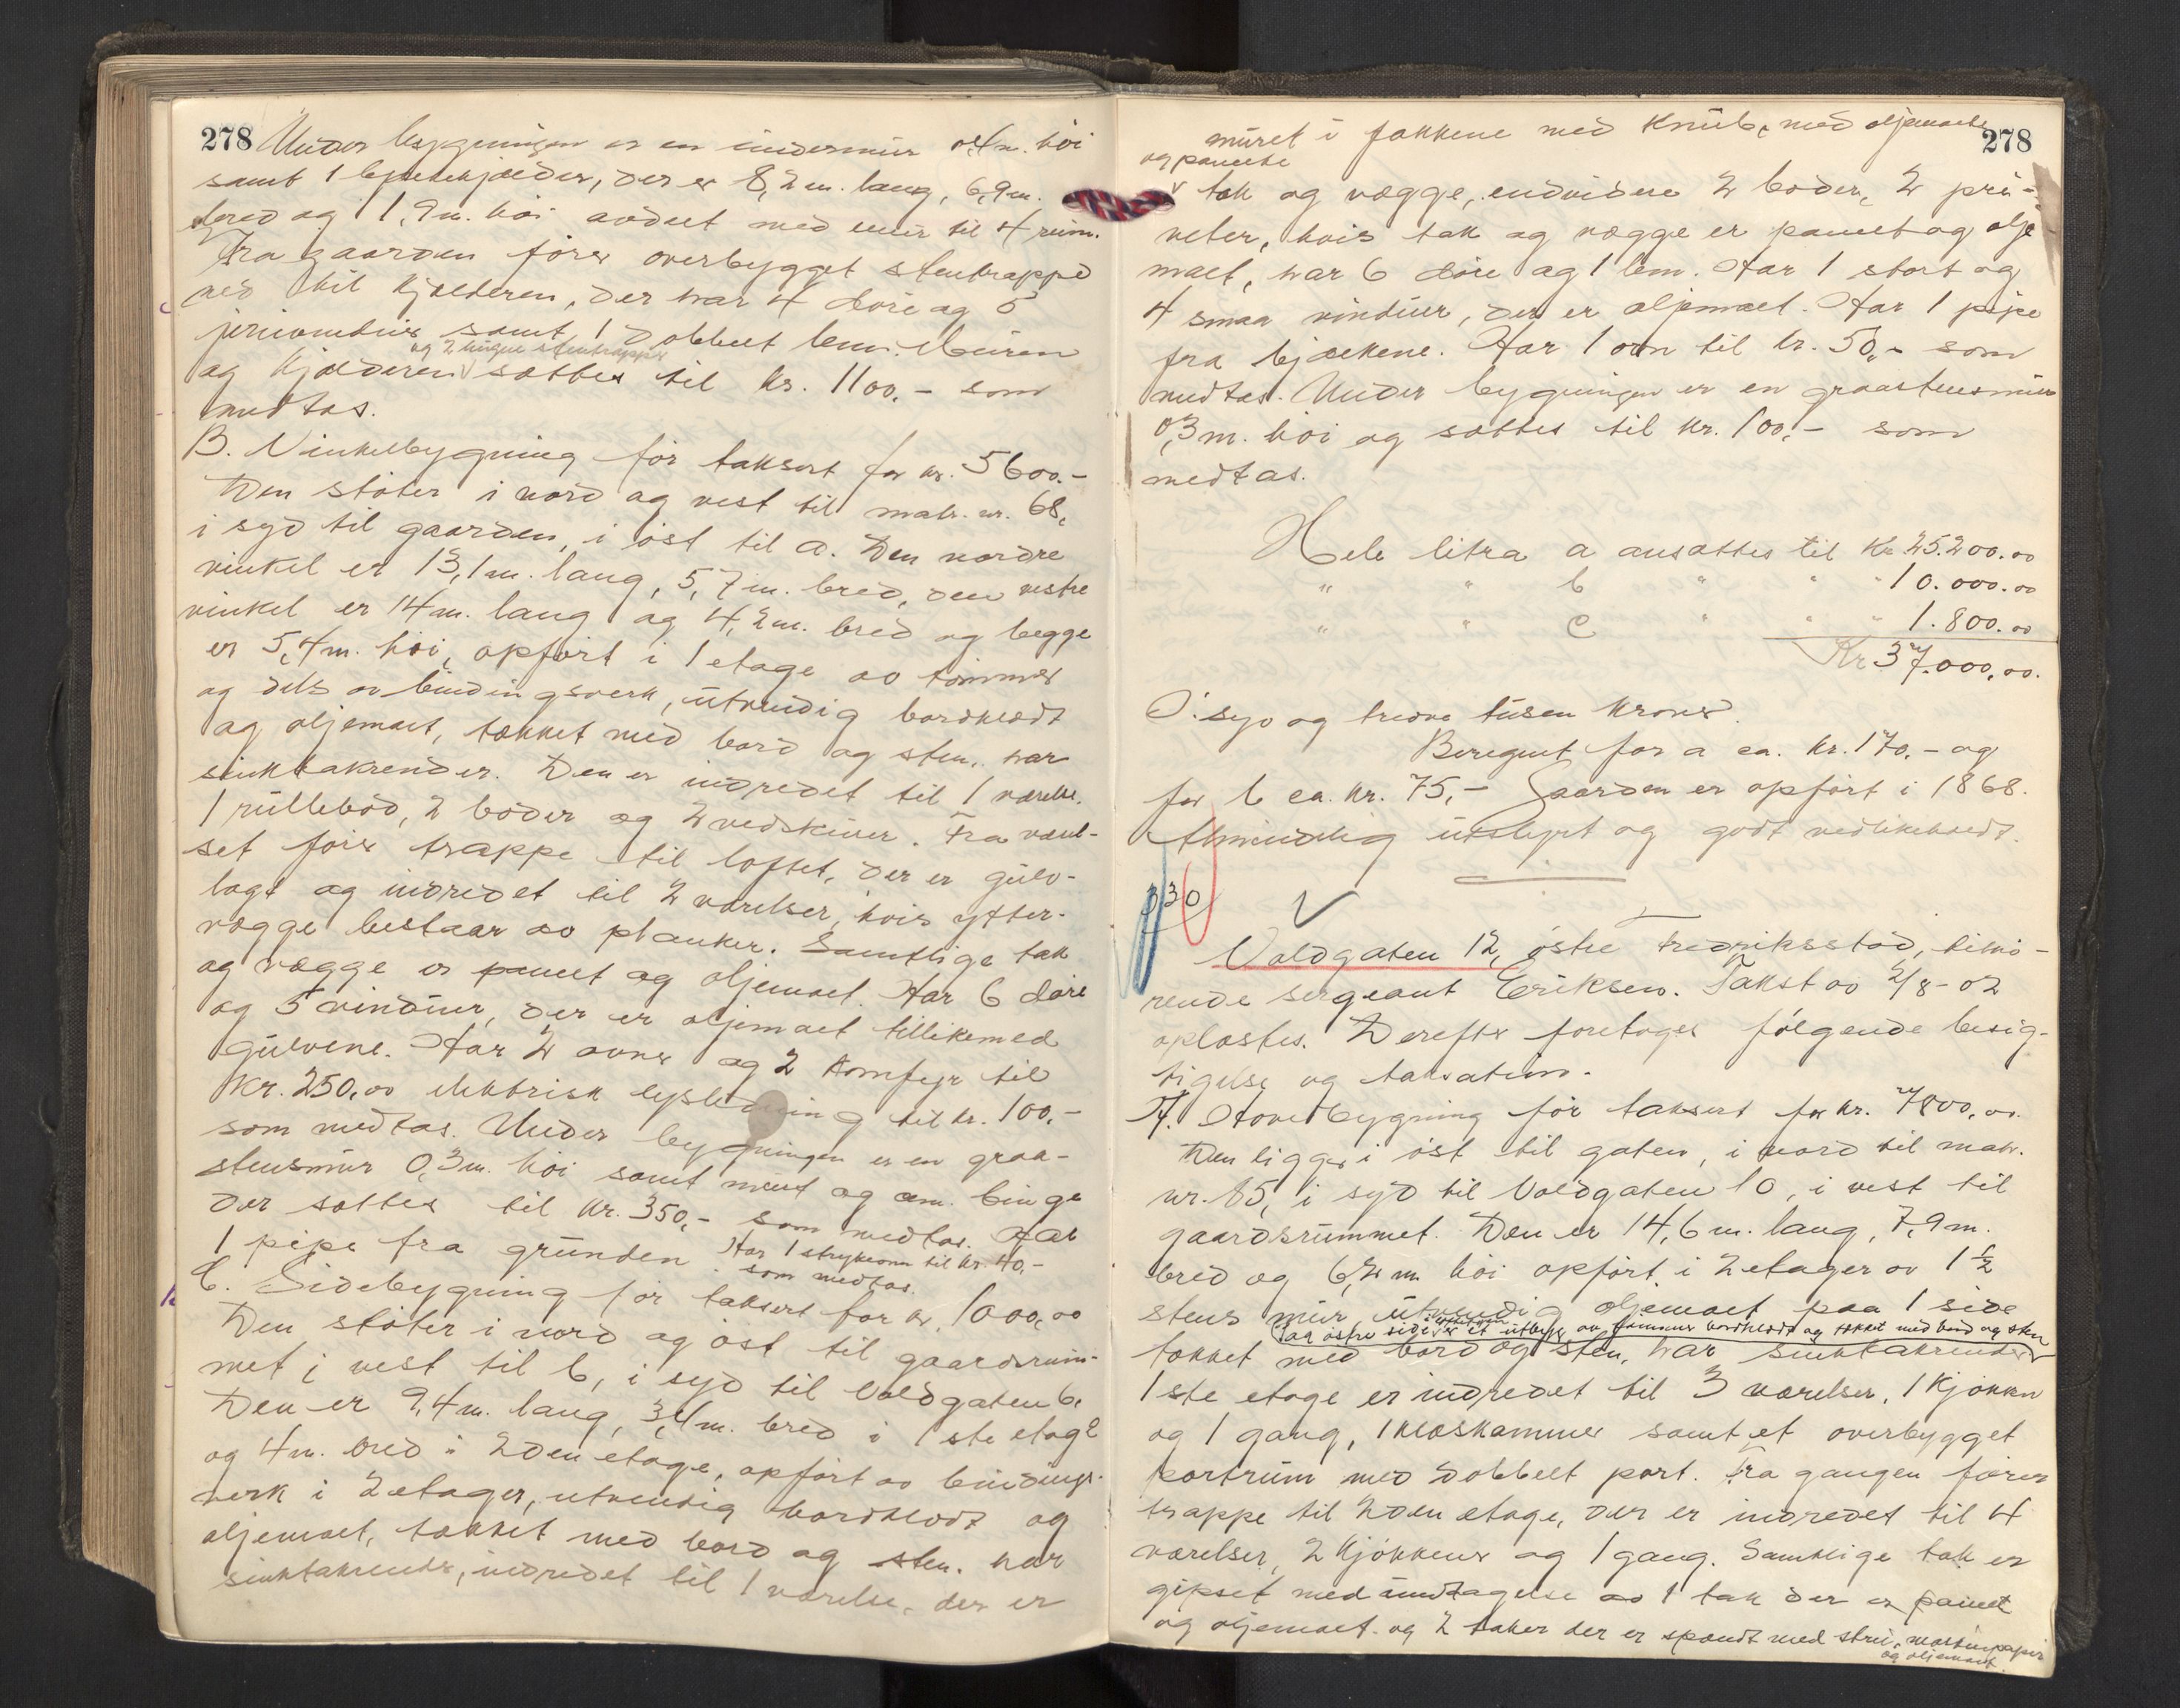 278 Under bygningen er en undermur 0,4 m. høi
samt 1 hvelvkjælder, der er 8,2 m. lang, 6,9 m.
bred og 1,9 m. høi avdeelt med mur til 4 rum.
Fra gaarden fører overbygget stentrappe
ned til kjælderen, der har 4 døre og 5
jernvinduer samt 1 dobbelt lem. Muren
og 2 utvendige stentrapper
og kjælderen sættes til kr. 1100.- som
medtas.
B. Vinkelbygning før taksert for kr. 5600.-
Den støter i nord og vest til matr. nr. 68,
i syd til gaarden, i øst til a. Den nordre
vinkel er 13,1 m. lang, 5,7 m. bred, den vestre
vinkel er 14 m. lang og 4,2 m. bred og begge
er 5,4 m. høi, opført i 1 etage av tømmer
og dels av bindingsverk, utvendig bordklædt
og oljemalt, tækket med bord og sten, har
sinktakrender. Den er indredet til 1 værelse,
1 rullebod, 2 boder og 2 vedskiuer. Fra værel-
set fører trappe til loftet, der er gulv-
lagt og indredet til 2 værelser, hvis ytter-
vægge bestaar av planker. Samtlige tak
og vægge er panelt og oljemalt. Har 6 døre
og 5 vinduer, der er oljemalt tillikemed
gulvene. Har 2 ovner og 2 komfyr til
kr. 250,00 elektrisk lysledning til kr. 100.-
som medtas. Under bygningen er en graa-
stensmur 0,3 m. høi samt muret og cem. binge
der sættes til kr. 350,- som medtas. Har
1 pipe fra grunden. Har 1 strykeovn til kr. 40.-
som medtas.
C. Sidebygning før taksert for kr. 1000,00
Den støter i nord og øst til gaardsrum-
met i vest til b, i syd til Voldgaten 6.
Den er 9,4 m. lang, 3,4 m. bred i 1ste etage
og 4 m. bred i 2den etage, opført av bindings-
verk i 2 etager, utvendig bordklædt og
oljemalt, tækket med bord og sten. har
sinktakrender, indredet til 1 værelse, der er
278
muret i fakkene med knub, med oljemalte
og panelte
tak og vægge, endvidere 2 boder, 2 pri-
veter, hvis tak og vægge er panelt og olje
malt, har 6 døre og 1 lem. Har 1 stort og
4 smaa vinduer, der er oljemalt. Har 1 pipe
fra bjælkene. Har 1 ovn til kr. 50,- som
medtas. Under bygningen er en graastensmur
0,3 m. høi og sættes til kr. 100,- som
medtas.
Hele litra a ansættes til Kr 25.200.00
" " b " " " 10.000.00
" " C " " " 1.800.00
Kr 37.000,00.
O: syv og tredve tusen kroner.
Beregnet for a ca. kr. 170,- og
for b ca. kr. 75,- Gaarden er opført i 1868.
Almindelig utstyrt og godt vedlikeholdt.
330
Voldgaten 12, østre Fredriksstad, tilhø-
rende sergeant Eriksen. Takst av 2/8-02
oplæstes. Derefter foretoges følgende besig-
tigelse og taksation.
A. Hovedbygning før taksert for kr. 7800,00.
Den ligger i øst til gaten, i nord til matr.
nr. 65, i syd til Voldgaten 10, i vest til
gaardsrummet. Den er 14,6 m. lang, 7,9 m.
bred og 6,2 m. høi opført i 2 etager av 1½
stens mur utvendig oljemalt paa 1 side
Paa østre side er et utbygg av tømmer bordklædt og tækket med bord og sten
tækket med bord og sten, har sinktakrender
1ste etage er indredet til 3 værelser, 1 kjøkken
og 1 gang, 1 klæskammer samt et overbygget
portrum med dobbelt port. Fra gangen fører
trappe til 2den etage, der er indredet til 4
værelser, 2 kjøkkener og 1 gang. Samtlige tak er
gipset med undtagelse av 1 tak der er panelt
og oljemalt og 2 taker der er spændt med strie, maskinpapir
og oljemalt.